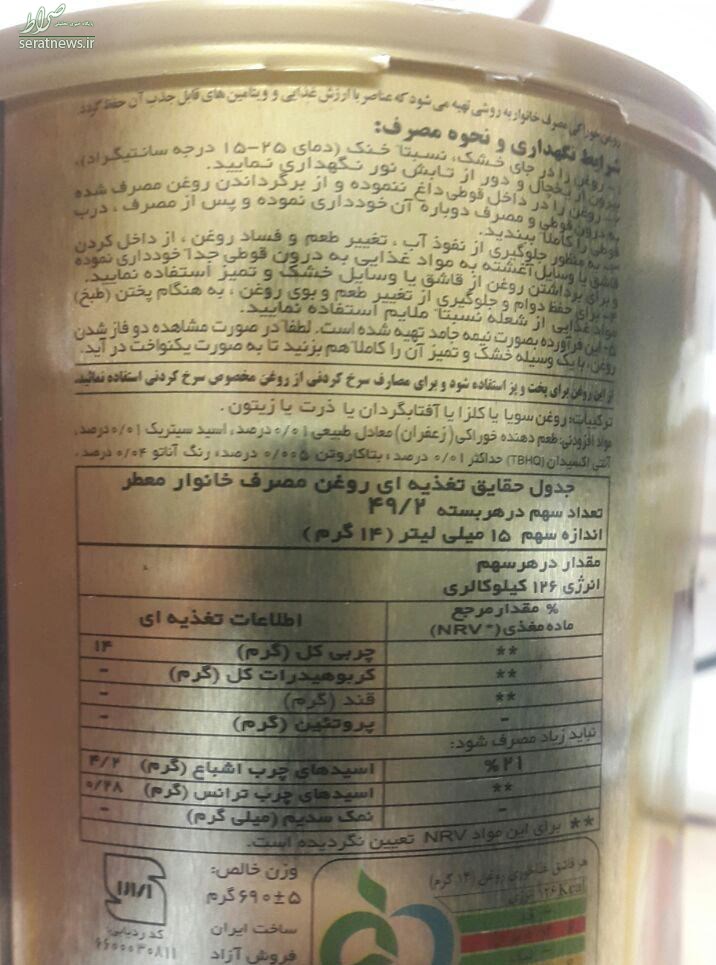 صراط
seratnews.ir
روغن خوراکی مصرف خانوار به روشی تهیه می شود که عناصر با ارزش غذایی و ویتامین های قابل جذب آن حفظ گردد
شرایط نگهداری و نحوه مصرف:
۱- روغن را در جای خشک، نسبتاً خنک (دمای ۲۵-۱۵ درجه سانتیگراد)،
بیرون از یخچال و دور از تابش نور نگهداری نمایید.
۲- روغن را در داخل قوطی داغ ننموده و از برگرداندن روغن مصرف شده
به درون قوطی و مصرف دوباره آن خودداری نموده و پس از مصرف، درب
قوطی را کاملاً ببندید.
۳- به منظور جلوگیری از نفوذ آب، تغییر طعم و فساد روغن، از داخل کردن
قاشق یا وسایل آغشته به مواد غذایی به درون قوطی جداً خودداری نموده
و برای برداشتن روغن از قاشق یا وسایل خشک و تمیز استفاده نمایید.
۴- برای حفظ دوام و جلوگیری از تغییر طعم و بوی روغن، به هنگام پختن (طبخ)
مواد غذایی از شعله نسبتاً ملایم استفاده نمایید.
۵- این فرآورده بصورت نیمه جامد تهیه شده است. لطفاً در صورت مشاهده دو فاز شدن
روغن، با یک وسیله خشک و تمیز آن را کاملاً هم بزنید تا به صورت یکنواخت در آید.
از این روغن برای پخت و پز استفاده شود و برای مصارف سرخ کردنی از روغن مخصوص سرخ کردنی استفاده نمائید.
ترکیبات: روغن سویا یا کلزا یا آفتابگردان یا ذرت یا زیتون.
مواد افزودنی: طعم دهنده خوراکی (زعفران) معادل طبیعی ۰/۰۱ درصد، اسید سیتریک ۰/۰۱ درصد،
آنتی اکسیدان (TBHQ) حداکثر ۰/۰۱ درصد، بتاکاروتن ۰/۰۰۵ درصد، رنگ آناتو ۰/۰۴ درصد.
جدول حقایق تغذیه ای روغن مصرف خانوار معطر
تعداد سهم در هر بسته ۴۹/۲
اندازه سهم ۱۵ میلی لیتر (۱۴ گرم)
مقدار در هر سهم
انرژی ۱۲۶ کیلوکالری
% مقدار مرجع ماده مغذی (NRV*) اطلاعات تغذیه ای
** چربی کل (گرم) ۱۴
** کربوهیدرات کل (گرم) -
** قند (گرم) -
- پروتئین (گرم) -
نباید زیاد مصرف شود:
%۲۱ اسیدهای چرب اشباع (گرم) ۴/۲
** اسیدهای چرب ترانس (گرم) ۰/۲۸
- نمک سدیم (میلی گرم) -
** برای این مواد NRV تعیین نگردیده است.
هر قاشق غذاخوری روغن (۱۴ گرم)
۱۲۶ Kcal انرژی
وزن خالص:
۶۹۰±۵ گرم
ساخت ایران
فروش آزاد
کد ردیابی:
۶۶۰۰۰۳۰۸۱۱